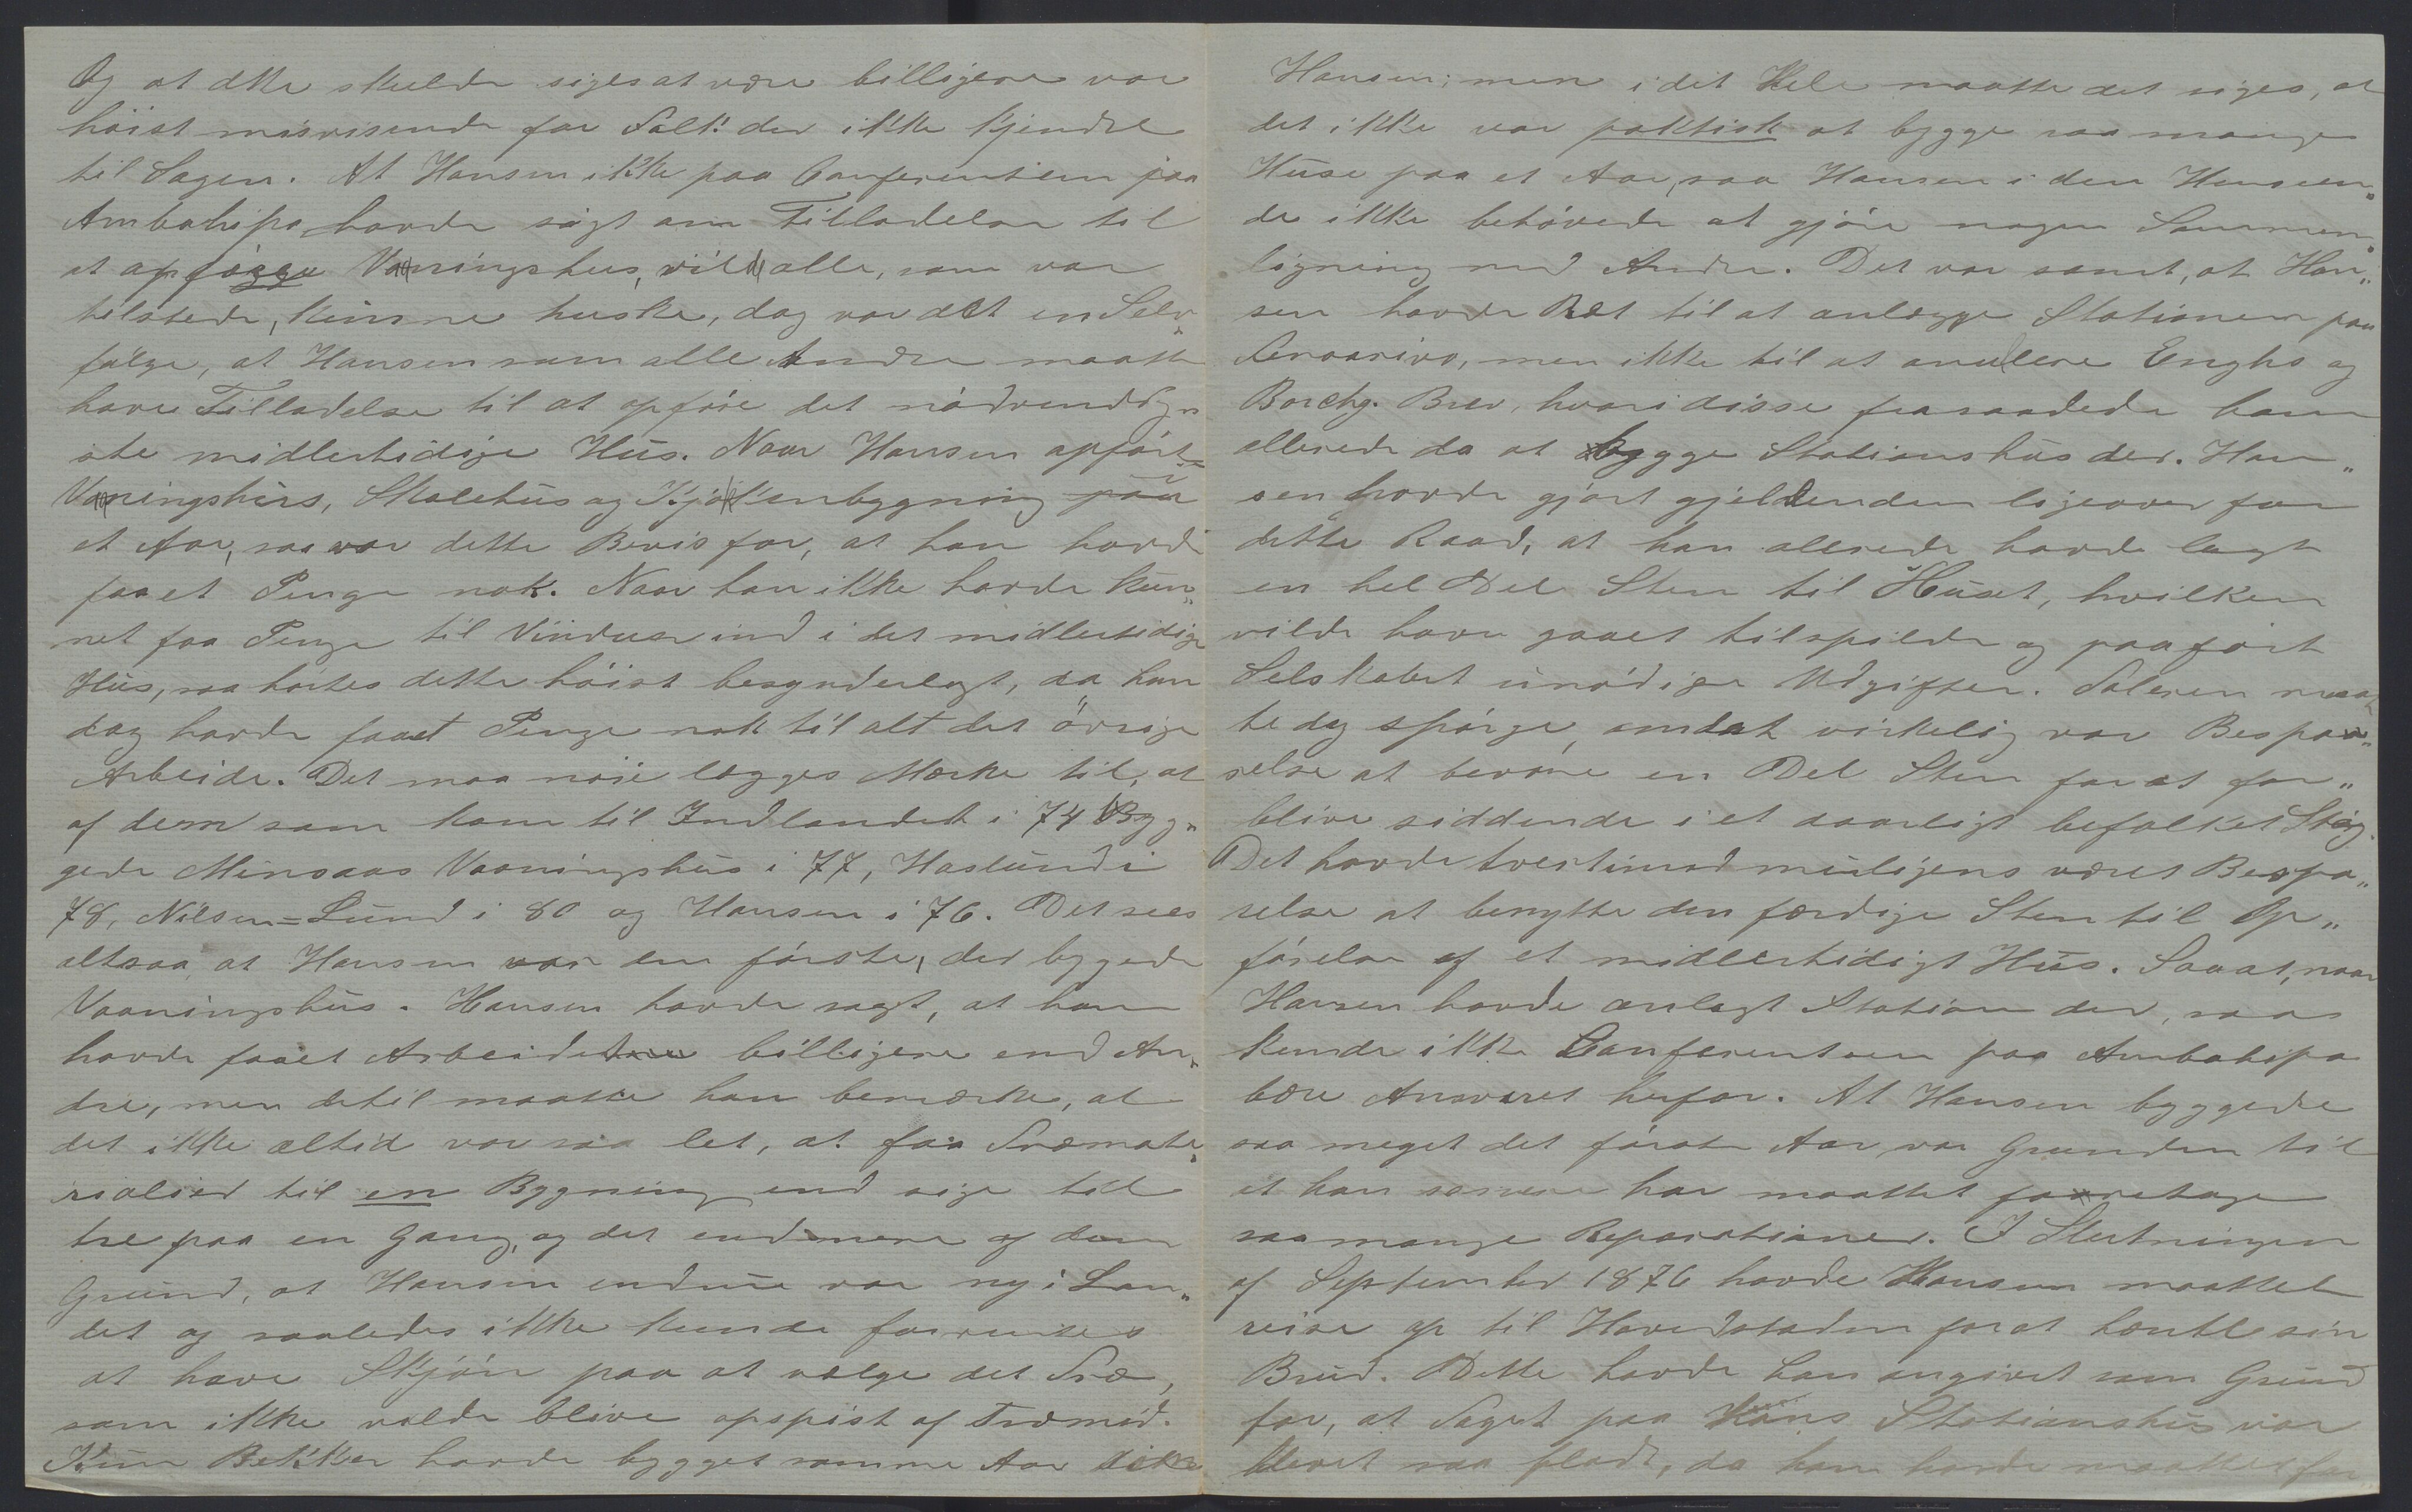 Og at dette skulde siges at være billigere var
höist misvisende for Folk der ikke kjendte
til Sagen. At Hansen ikke paa Conferentsen paa
Ambohipo havde sögt om Tilladelse til
at opbygge Vaaningshus, vil alle, som var
tilstede, kunne huske, dog var det en Selv„
fölge, at Hansen som alle Andre maatte
have Tilladelse til at opföre det nödvendig„
ste midlertidige Hus. Naar Hansen opfört
Vaaningshus, Skolehus og Kjökkenbygning paa
et Aar, saa var dette Bevis for, at han havde
faaet Penge nok. Naar han ikke havde kun„
net faa Penge til Vinduer ind i det midlertidige
Hus, saa hörtes dette höist besynderligt, da han
dog havde faaet Penge nok til alt det övrige
Arbeide. Det maa nöie lægges Mærke til, at
af dem som kom til Indlandet i 74 Byg„
gede Minsaas Vaaningshus i 77, Haslund i
78, Nilsen=Lund i 80 og Hansen i 76. Det sees
altsaa, at Hansen var den förste, der byggede
Vaaningshus. Hansen havde sagt, at han
havde faaet Arbeidet billigere end An„
dre, men dertil maatte han bemærke, at
det ikke altid var saa let, at faa Træmate„
rialier til en Bygning end sige til
tre paa en Gang, og det end mere af den
Grund, at Hansen endnu var ny i Lan„
det og saaledes ikke kunde forventes
at have Skjön paa at vælge det Træ,
som ikke vilde blive opspist af Træmid.
Kun Bekker havde bygget samme Aar som
Hansen; men i det Hele maatte det siges, at
det ikke var paktisk at bygge saa mange
Huse paa et Aar, saa Hansen i den Henseen„
de ikke behövede at gjöre nogen Sammen„
ligning med Andre. Det var sandt, at Han„
sen havde Ret til at anlægge Stationen paa
Soavina, men ikke til at anullere Enghs og
Borchg. Brev, hvori disse fraraadede ham
allerede da at bygge Stationshus der. Han„
sen havde gjort gjeldenden ligeover for
dette Raad, at han allerede havde lagt
en hel Del Sten til Huset, hvilken
vilde have gaaet tilspilde og paafört
Selskabet unödige Udgifter. Taleren maat
te dog spörge, om det virkelig var Bespar„
relse at bevare en Del Sten for at for„
blive siddende i et daarligt befolket Strög.
Det havde tvertimod muligens været Bespa„
relse at benytte den færdige Sten til Op„
förelse af et midlertidigt Hus. Saa at, naar
Hansen havde anlagt Station der, saa
kunde ikke Conferentsen paa Ambohipo
bære Ansvaret herfor. At Hansen byggede
saa meget det förste Aar var Grunden til
at han senere har maattet foretage
saa mange Reparationer. I Slutningen
af September 1876 havde Hansen maattet
reise op til Hovedstaden for at hente sin
Brud. Dette havde han angivet som Grund
for, at Taget paa Hans Stationshus var
blevet saa fladt, da han havde maattet faa